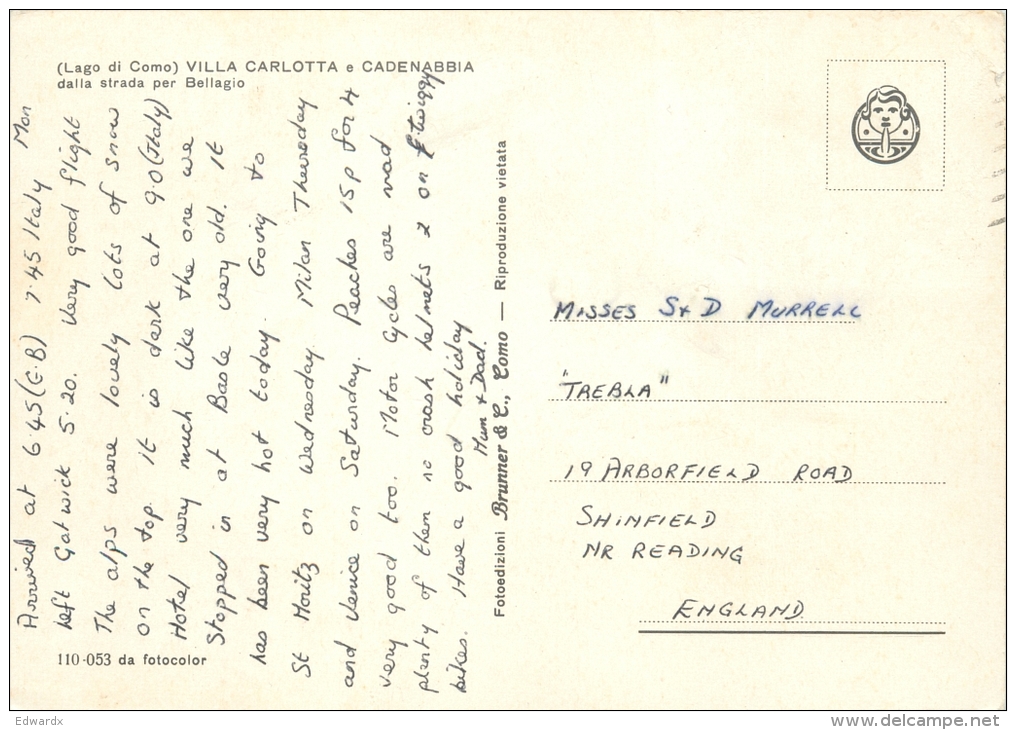 (Lago di Como) VILLA CARLOTTA e CADENABBIA
dalla strada per Bellagio
Mon
Arrived at 6.45 (G.B) 7.45 Italy
left Gatwick 5.20. Very good flight
The alps were lovely lots of snow
on the top. It is dark at 9.0 (Italy)
Hotel very much like the one we
Stopped in at Basle very old. It
has been very hot today. Going to
St Moritz on Wednesday. Milan Thursday
and Venice on Saturday. Peaches 15p for 4
very good too. Motor Cycles are mad
plenty of them no crash helmets 2 on
bikes. Have a good holiday
Mum & Dad.
110-053 da fotocolor
Fotoedizioni Brunner & C., Como — Riproduzione vietata
MISSES S & D MURRELL
"TREBLA"
19 ARBORFIELD ROAD
SHINFIELD
NR READING
ENGLAND
Edwardx
www.delcampe.net